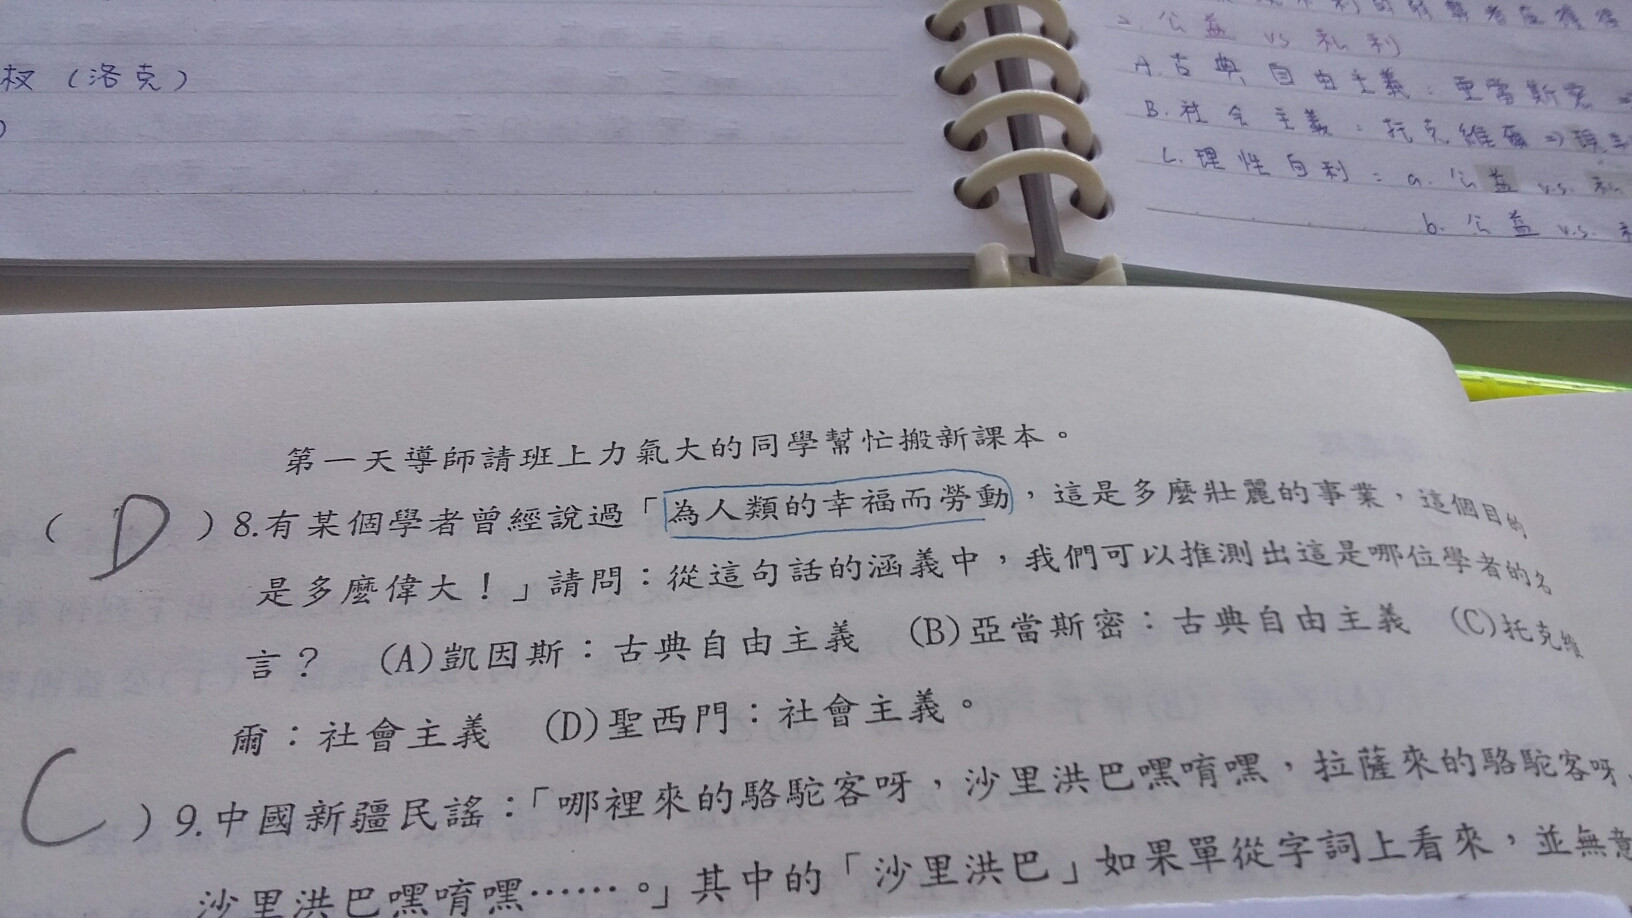 权（洛克）
2. 公益 vs 私利
A. 古典自由主義：亞當斯密⇒
B. 社會主義：托克維爾⇒
C. 理性自利：a. 公益 v.s. 私
b. 公益 v.s. 私
第一天導師請班上力氣大的同學幫忙搬新課本。
（D）8.有某個學者曾經說過「為人類的幸福而勞動，這是多麼壯麗的事業，這個目的
是多麼偉大！」請問：從這句話的涵義中，我們可以推測出這是哪位學者的名
言？ (A)凱因斯：古典自由主義 (B)亞當斯密：古典自由主義 (C)托克維
爾：社會主義 (D)聖西門：社會主義。
C ）9.中國新疆民謠：「哪裡來的駱駝客呀，沙里洪巴嘿唷嘿，拉薩來的駱駝客呀，
沙里洪巴嘿唷嘿……。」其中的「沙里洪巴」如果單從字詞上看來，並無意